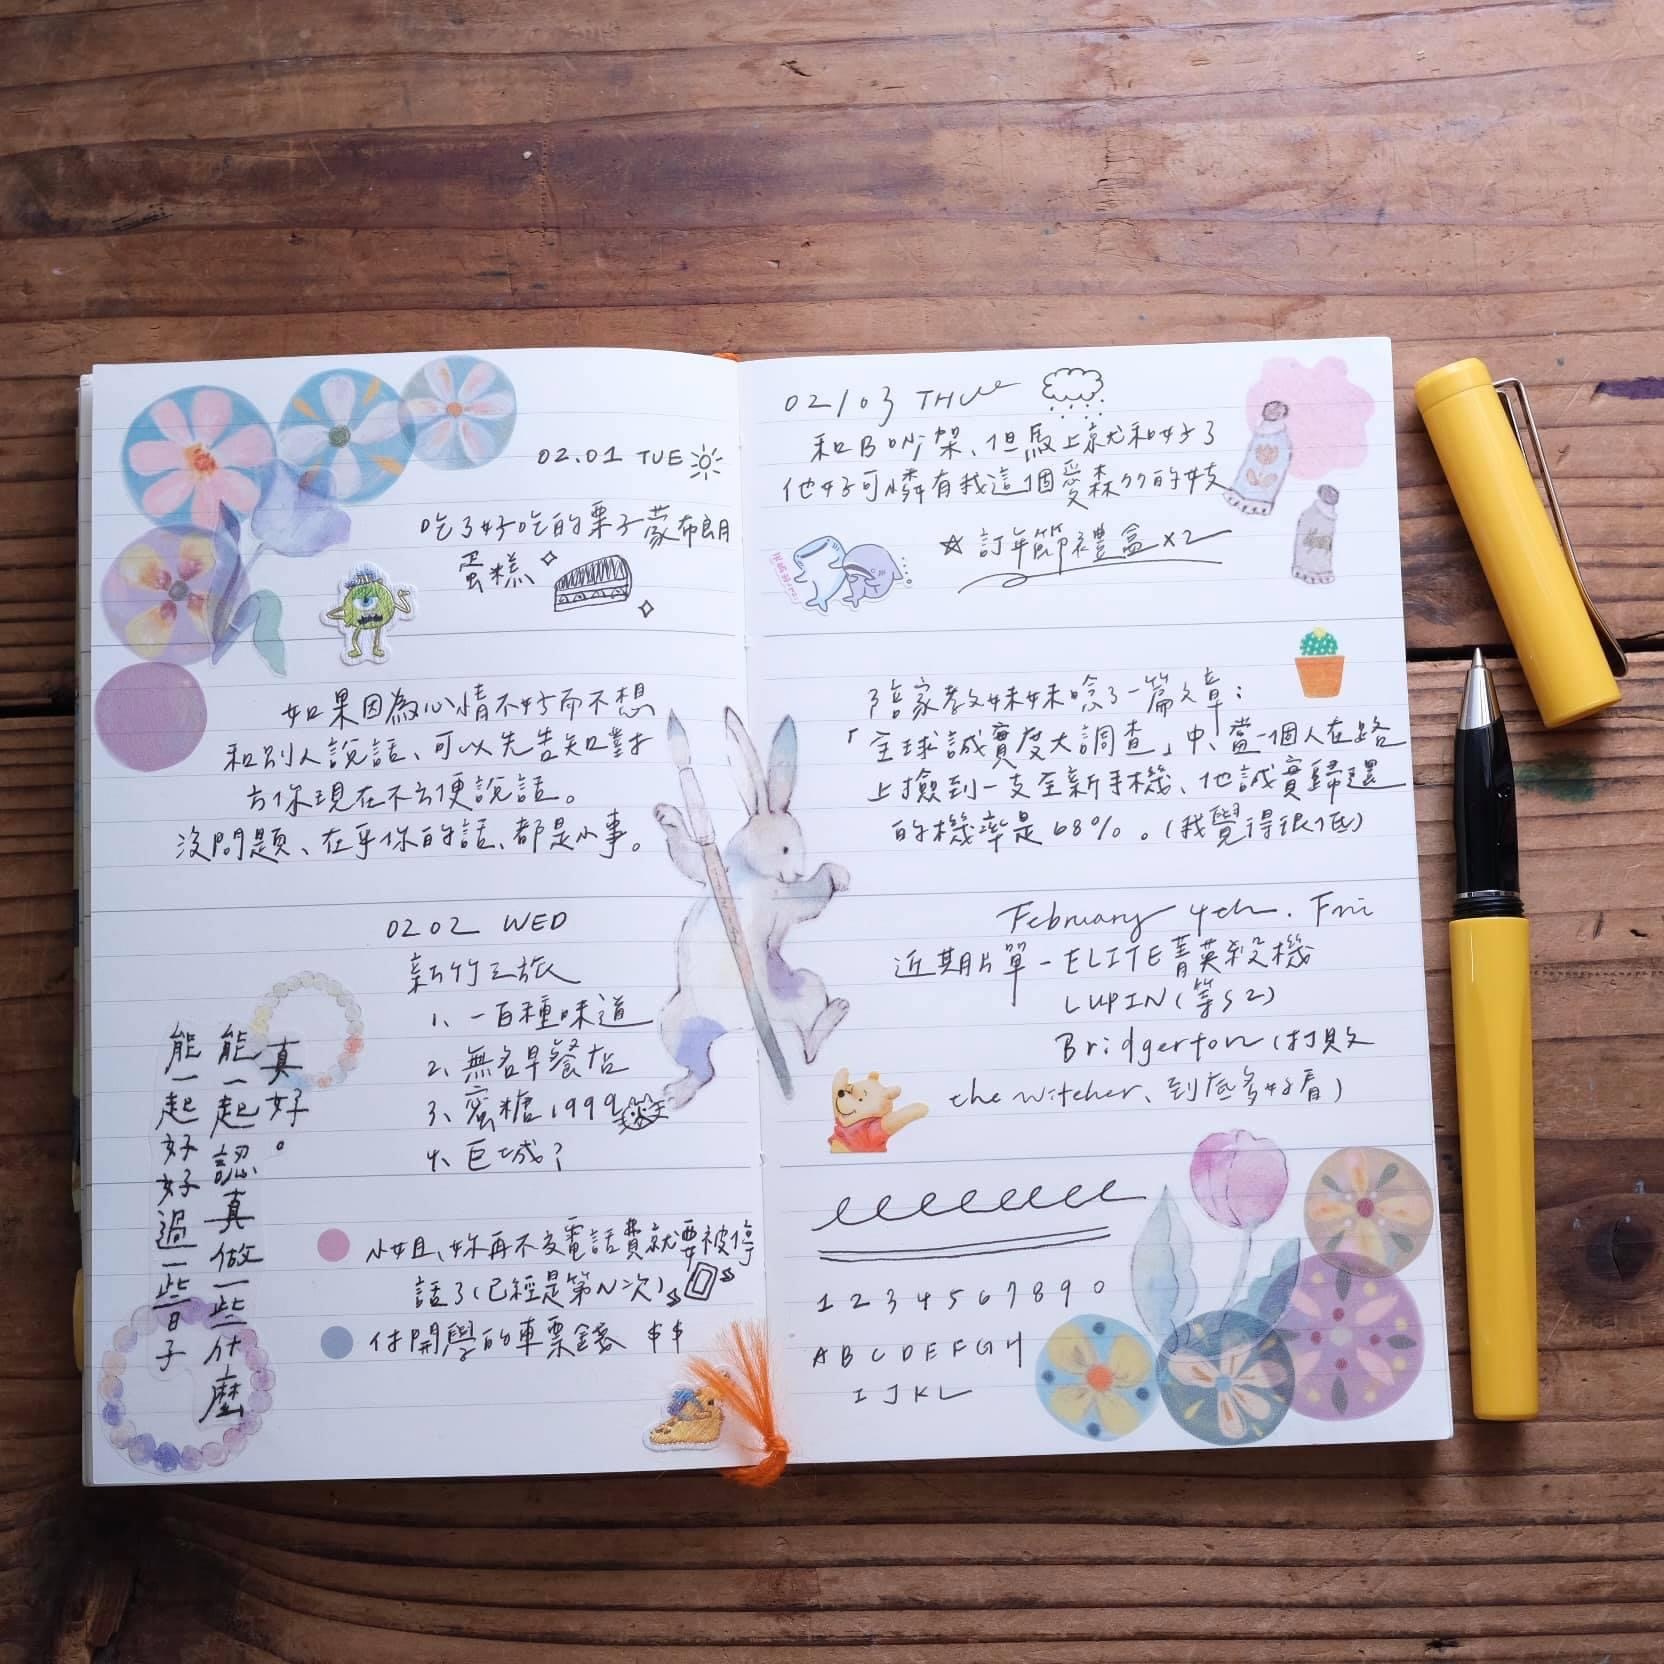 02.01 TUE
吃了好吃的栗子蒙布朗
蛋糕
如果因為心情不好而不想
和別人說話、可以先告知對
方你現在不方便說話。
沒問題、在乎你的話、都是小事。
0202 WED
新竹之旅
1、一百種味道
2、無名早餐店
3、蜜糖1999
4、巨城?
真好。
能一起認真做一些什麼
能一起好好過一些日子
小姐、妳再不交電話費就要被停
話了(已經是第N次)
付開學的車票錢 $$
02/03 THU
和B吵架、但馬上就和好了
他好可憐有我這個愛森77的女友
☆ 訂年節禮盒x2
陪家教妹妹唸了一篇文章:
「全球誠實度大調查」中、當一個人在路
上撿到一支全新手機、他誠實歸還
的機率是68%。(我覺得很低)
February 4th. Fri
近期片單-ELITE菁英殺機
LUPIN(等S2)
Bridgerton(打敗
the witcher、到底多好看)
1 2 3 4 5 6 7 8 9 0
A B C D E F G H
I J K L